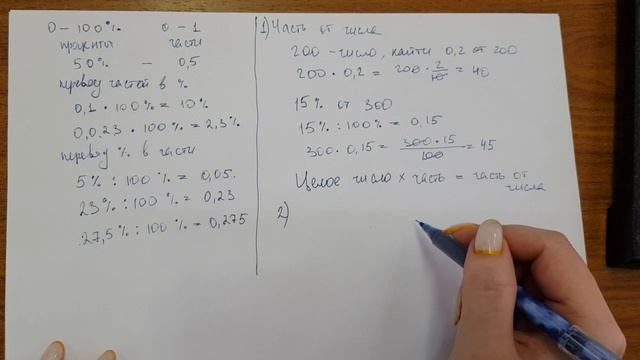 0 - 100% 0 - 1
проценты части
50% - 0,5
перевод частей в %
0,1 · 100% = 10%
0,0.23 · 100% = 2,3%
перевод % в части
5% : 100% = 0,05.
23% : 100% = 0,23
27,5% : 100% = 0,275
1) Часть от числа
200 - число, найти 0,2 от 200
200 · 0,2 = 200 · 2 / 10 = 40
15% от 300
15% : 100% = 0,15
300 · 0,15 = 300 · 15 / 100 = 45
Целое число × часть = часть от
числа
2)